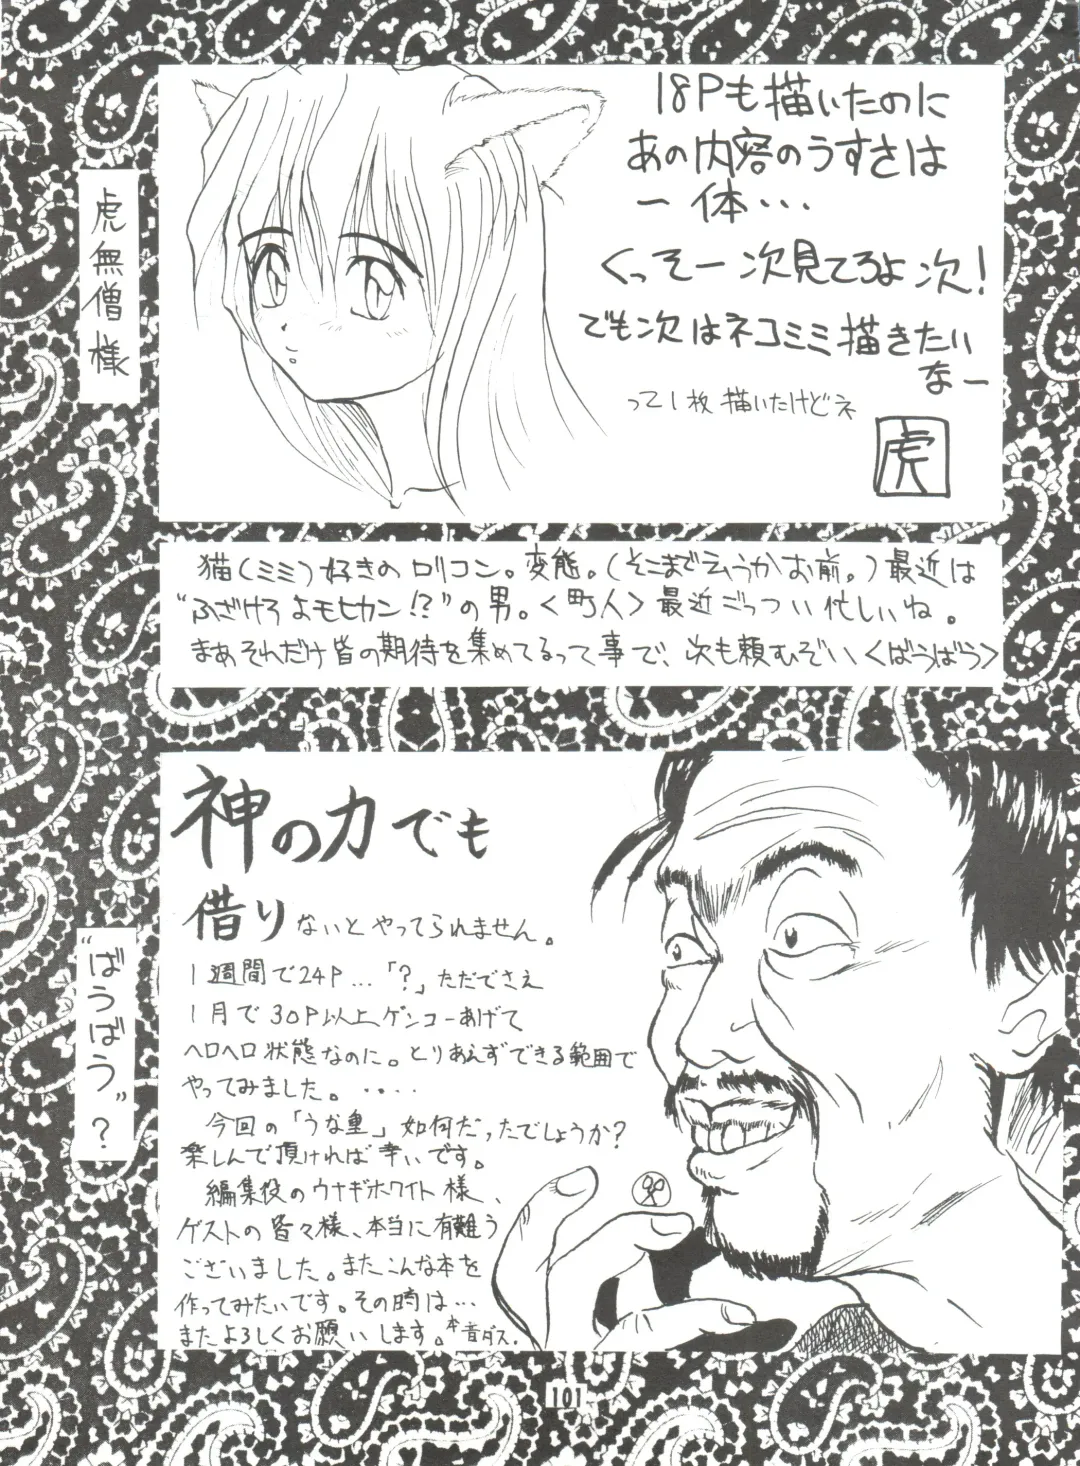 18Pも描いたのに
あの内容のうすさは
一体・・・
くっそー次見てろよ次!
でも次はネコミミ描きたい
なー
って1枚描いたけどネ
虎
虎無僧様
猫(ミミ)好きのロリコン。変態。(そこまで云うかお前。)最近は
"ふざけろよモヒカン!?"の男。<町人>最近ごっつい忙しいね。
まあそれだけ皆の期待を集めてるって事で、次も頼むぞい<ばうばう>
神の力でも
借りないとやってられません。
1週間で24P…「?」ただでさえ
1月で30P以上ゲンコーあげて
ヘロヘロ状態なのに。とりあえずできる範囲で
やってみました。・・・・
今回の「うな重」如何だったでしょうか?
楽しんで頂ければ幸いです。
編集役のウナギホワイト様、
ゲストの皆々様、本当に有難う
ございました。またこんな本を
作ってみたいです。その時は…
またよろしくお願いします。本音ダス.
"ばうばう"?
101